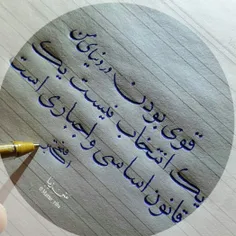 قوی بودن در دنیای من
یک انتخاب نیست یک
قانون اساسی و اجباری است